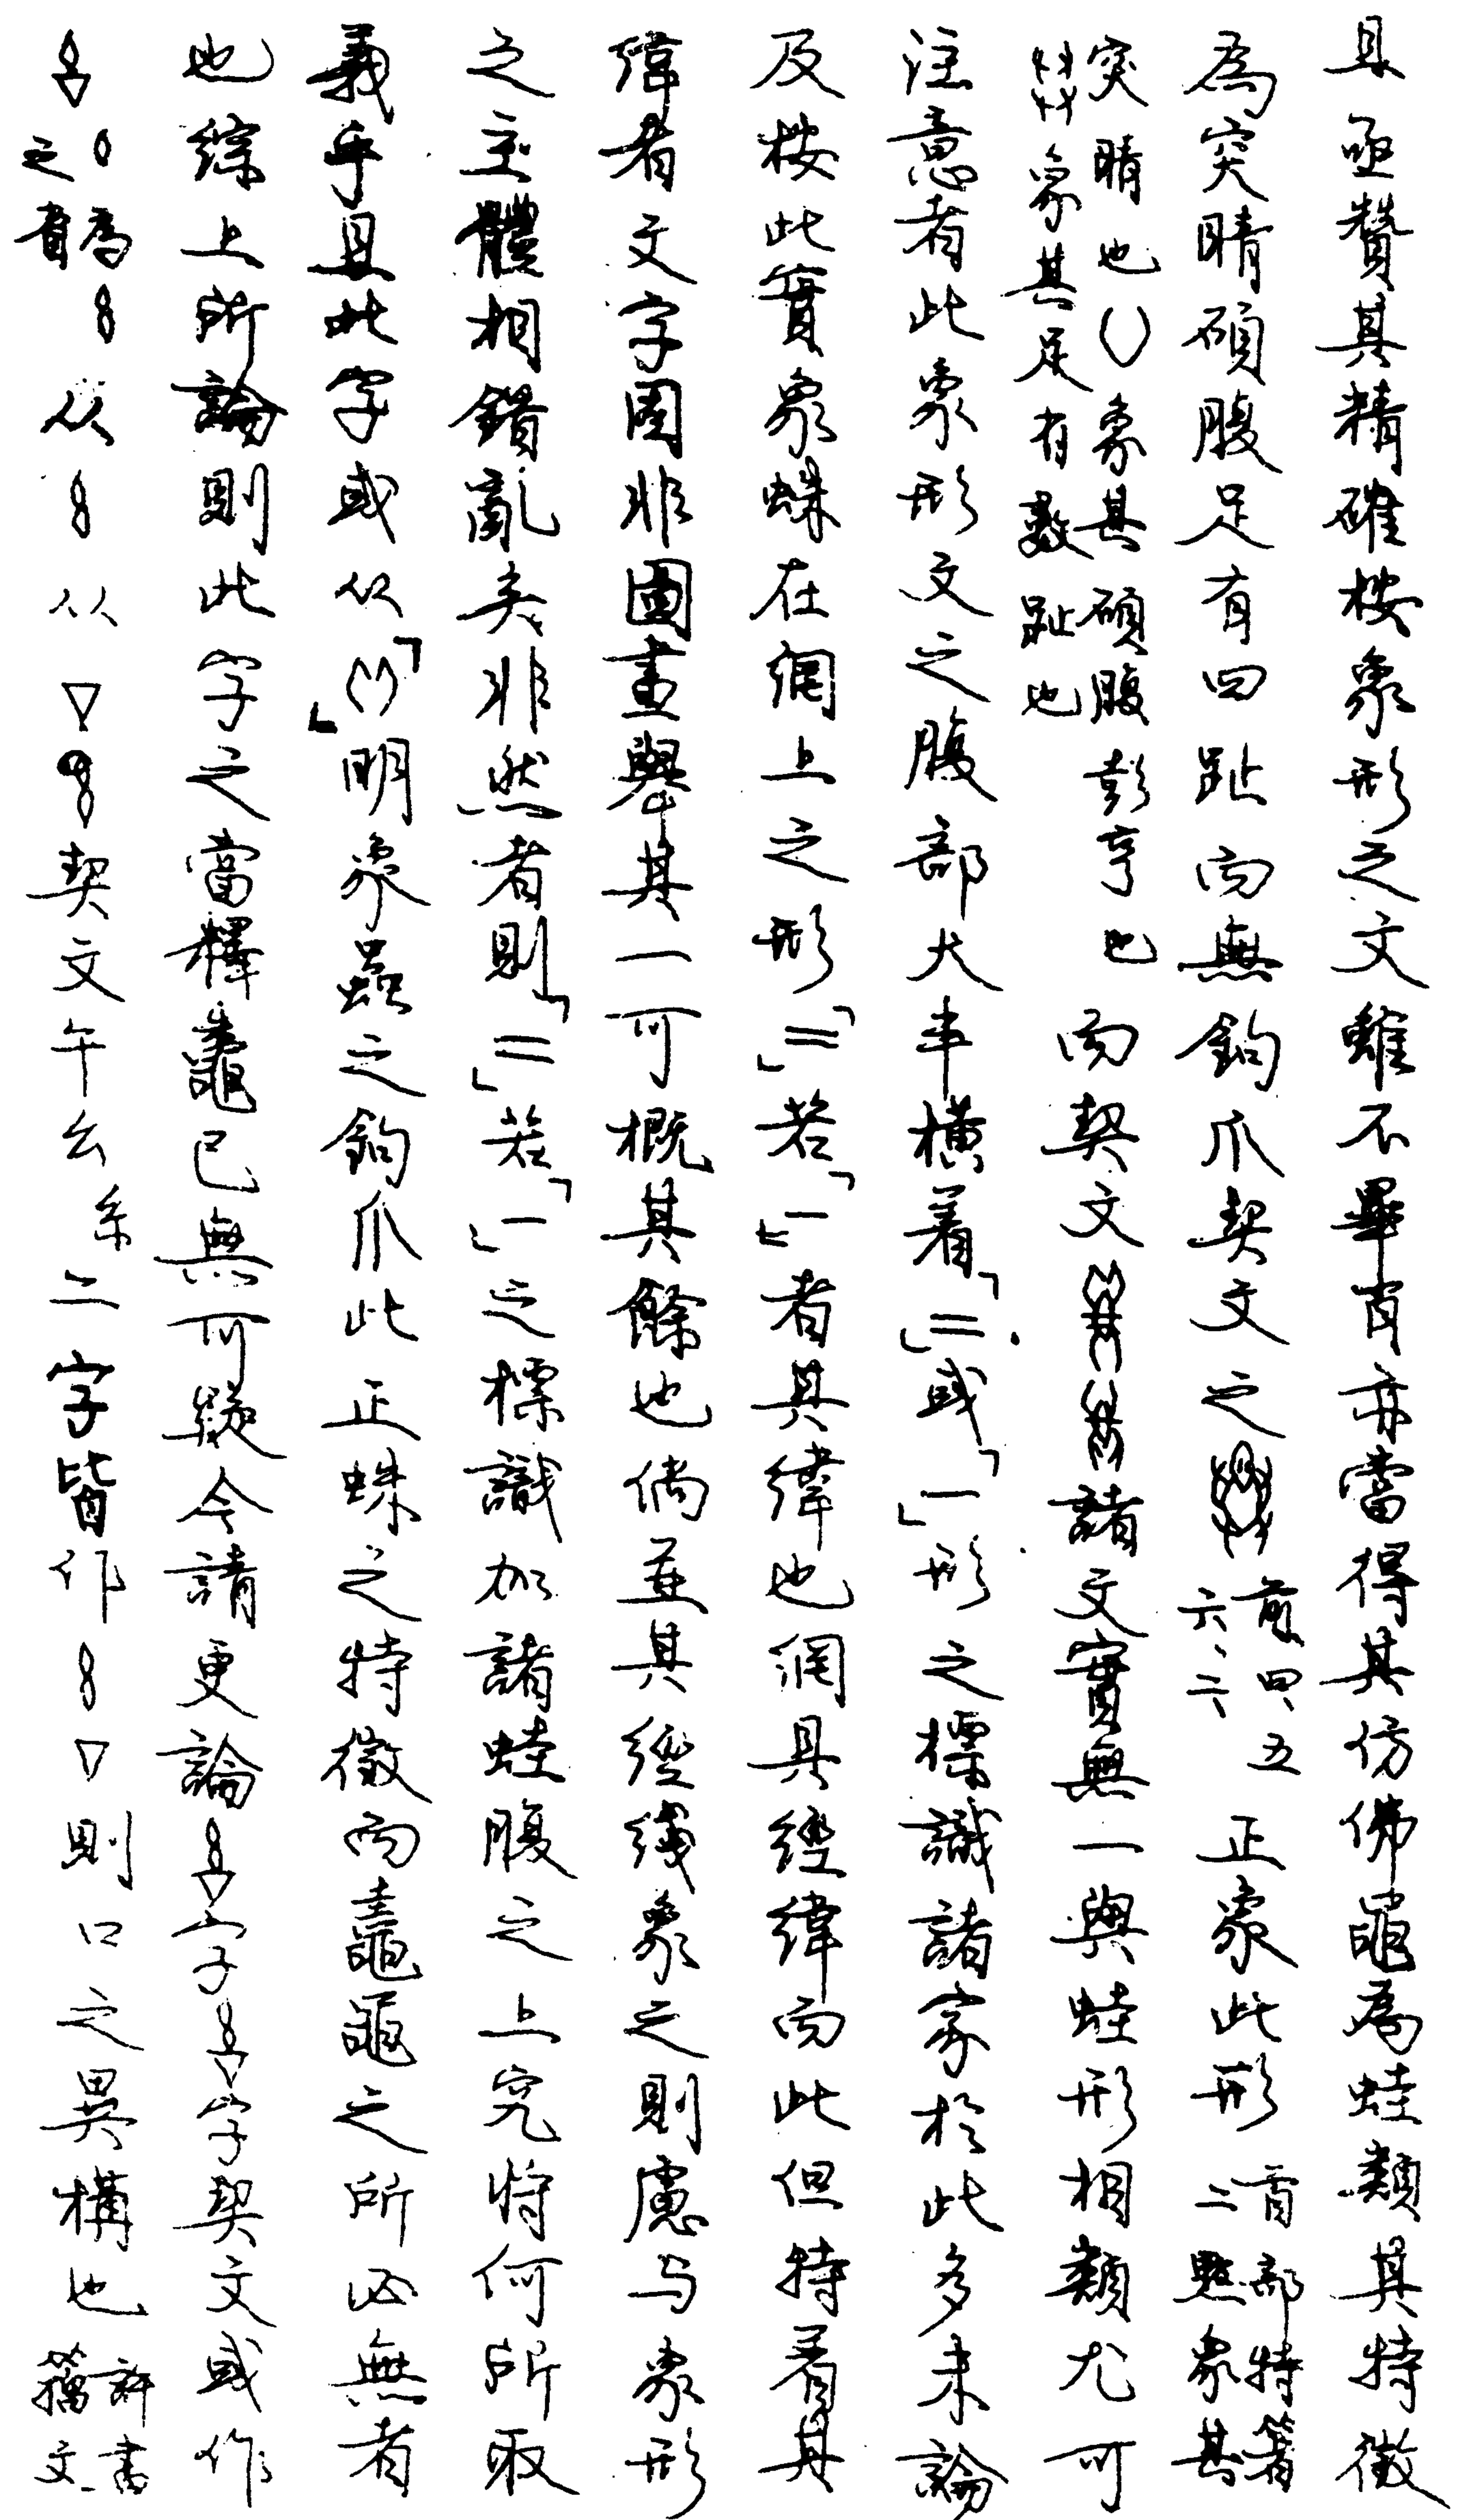 且亟贊其精確按象形之文雖不畢肖亦當得其仿佛黽為蛙類其特徵
為突睛碩腹足有四趾而無鉤爪契文之前四五六六二正象此形首部特著二點象其
突睛也()象其碩腹彭亨也象其足有數趾也而契文諸文實無一與蛙形相類尤可
注意者此象形文之腹部大率橫着「二」或「一」形之標識諸家於此多未論
及按此實象蛛在網上之形「二」若「一」者其緯也網具經緯而此但特着其
緯者文字固非圖畫舉其一可概其餘也倘並其經綫象之則慮与象形
之主體相錯亂矣非然者則「二」若「一」之標識加諸蛙腹之上究將何所取
義乎且此字或从「()」明象蟲之鉤爪此正蛛之特徵而鼃黽之所必無者
也綜上所論則此字之當釋鼄已無可疑今請更論字字契文或作
為之省从从契文午幺系二字皆作則口之異構也許書籀文